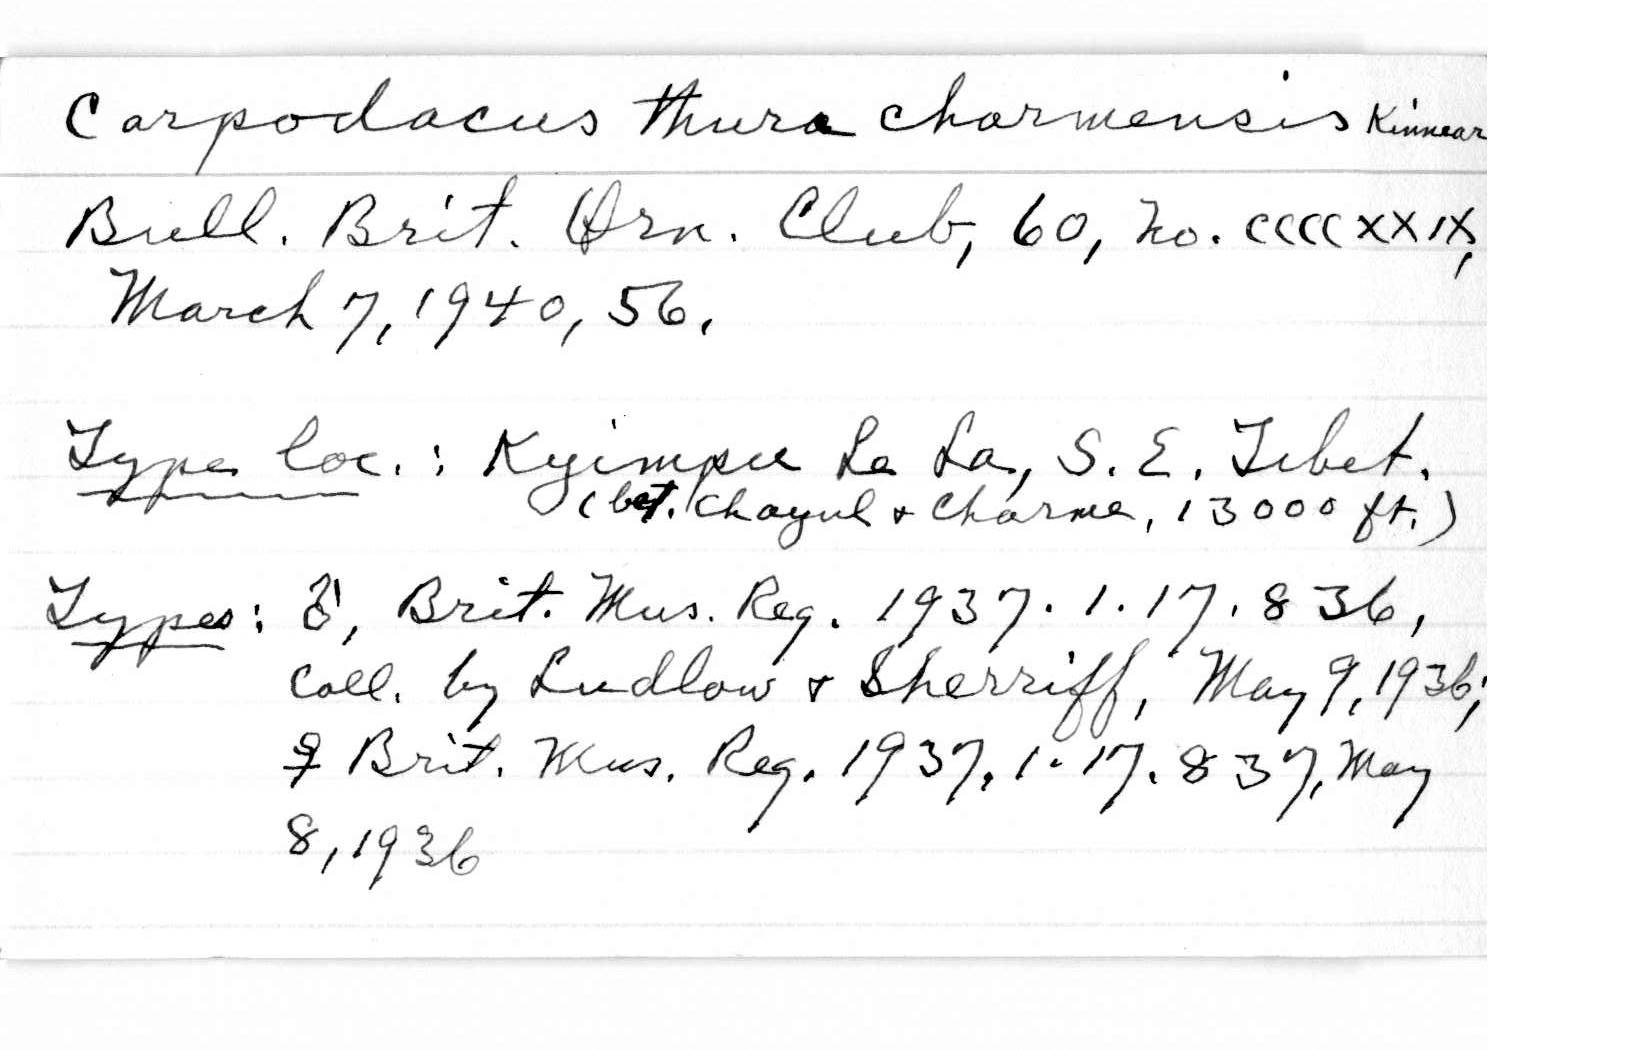 Carpodacus thura charmensis Kinnear
Bull. Brit. Orn. Club, 60, no. ccccxxix,
March 7, 1940, 56.
Type loc.: Kyimpu La La, S. E. Tibet.
(bet. Chayul & Charme, 13000 ft.)
Types: ♂, Brit. Mus. Reg. 1937.1.17.836,
Coll. by Ludlow & Sherriff, May 9, 1936;
♀ Brit. Mus. Reg. 1937.1.17.837, May
8, 1936